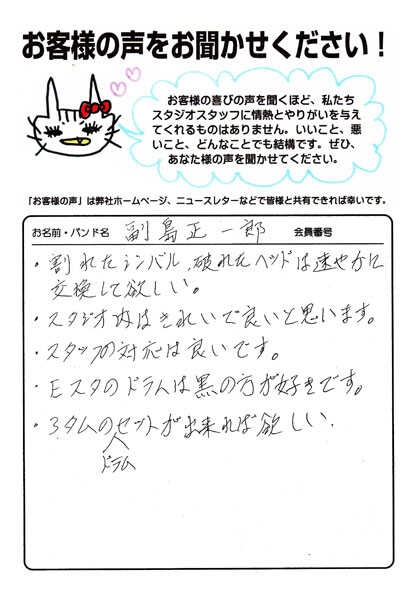 お客様の声をお聞かせください！
お客様の喜びの声を聞くほど、私たち
スタジオスタッフに情熱とやりがいを与え
てくれるものはありません。いいこと、悪
いこと、どんなことでも結構です。ぜひ、
あなた様の声を聞かせてください。
「お客様の声」は弊社ホームページ、ニュースレターなどで皆様と共有できれば幸いです。
お名前・バンド名 副島正一郎 会員番号
・割れたシンバル、破れたヘッドは速やかに
交換して欲しい。
・スタジオ内はきれいで良いと思います。
・スタッフの対応は良いです。
・Eスタのドラムは黒の方が好きです。
・3タムのセットが出来れば欲しい.
ドラム